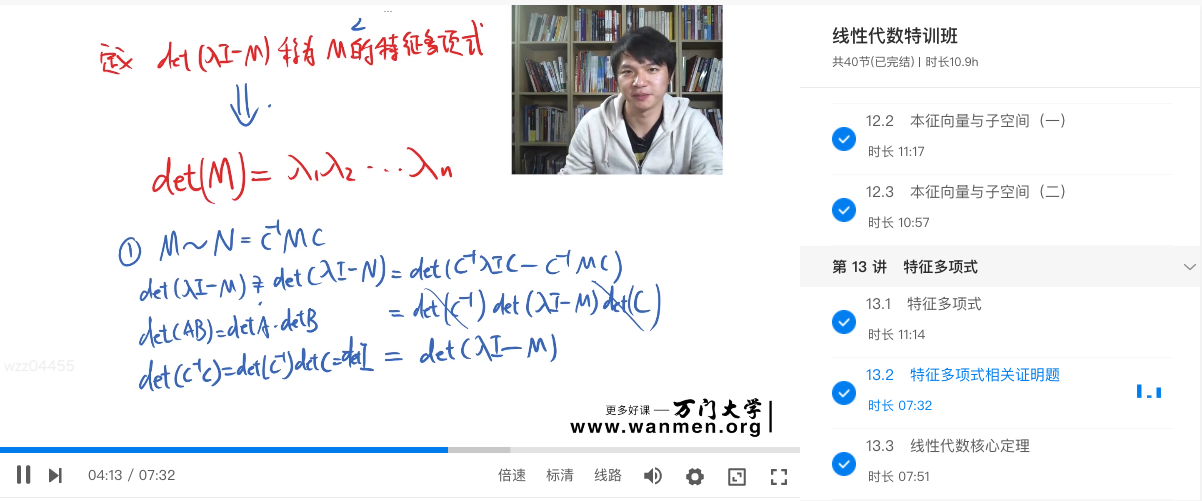 定义 det(λI-M) 称为 M的特征多项式
⇓
det(M) = λ₁λ₂ ··· λn
① M~N = C⁻¹MC
det(λI-M) ≟ det(λI-N) = det(C⁻¹λIC - C⁻¹MC)
det(AB)=detA·detB = det(C⁻¹) det(λI-M) det(C)
det(C⁻¹C)=det(C⁻¹)detC=detI = det(λI-M)
wzz04455
更多好课 — 万门大学
www.wanmen.org
04:13 / 07:32
倍速 标清 线路
线性代数特训班
共40节(已完结) | 时长10.9h
12.2 本征向量与子空间（一）
时长 11:17
12.3 本征向量与子空间（二）
时长 10:57
第 13 讲 特征多项式
13.1 特征多项式
时长 11:14
13.2 特征多项式相关证明题
时长 07:32
13.3 线性代数核心定理
时长 07:51